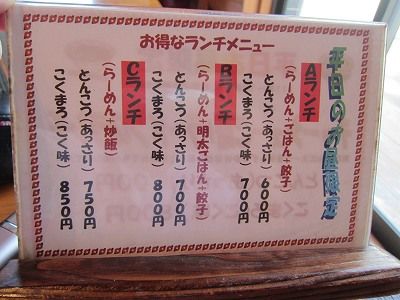 お得なランチメニュー
平日のお昼限定
Aランチ
(らーめん+ごはん+餃子)
とんこつ(あっさり) 600円
こくまろ(こく味) 700円
Bランチ
(らーめん+明太ごはん+餃子)
とんこつ(あっさり) 700円
こくまろ(こく味) 800円
Cランチ
(らーめん+炒飯)
とんこつ(あっさり) 750円
こくまろ(こく味) 850円